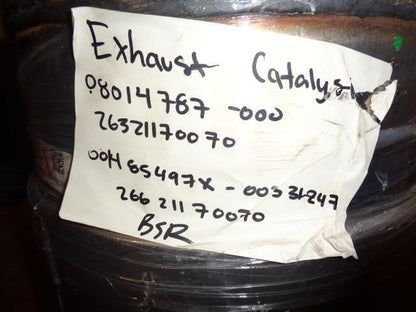 Exhaust Catalyst
08014787-000
26321170070
00H85497X-00331247
26621170070
BSR